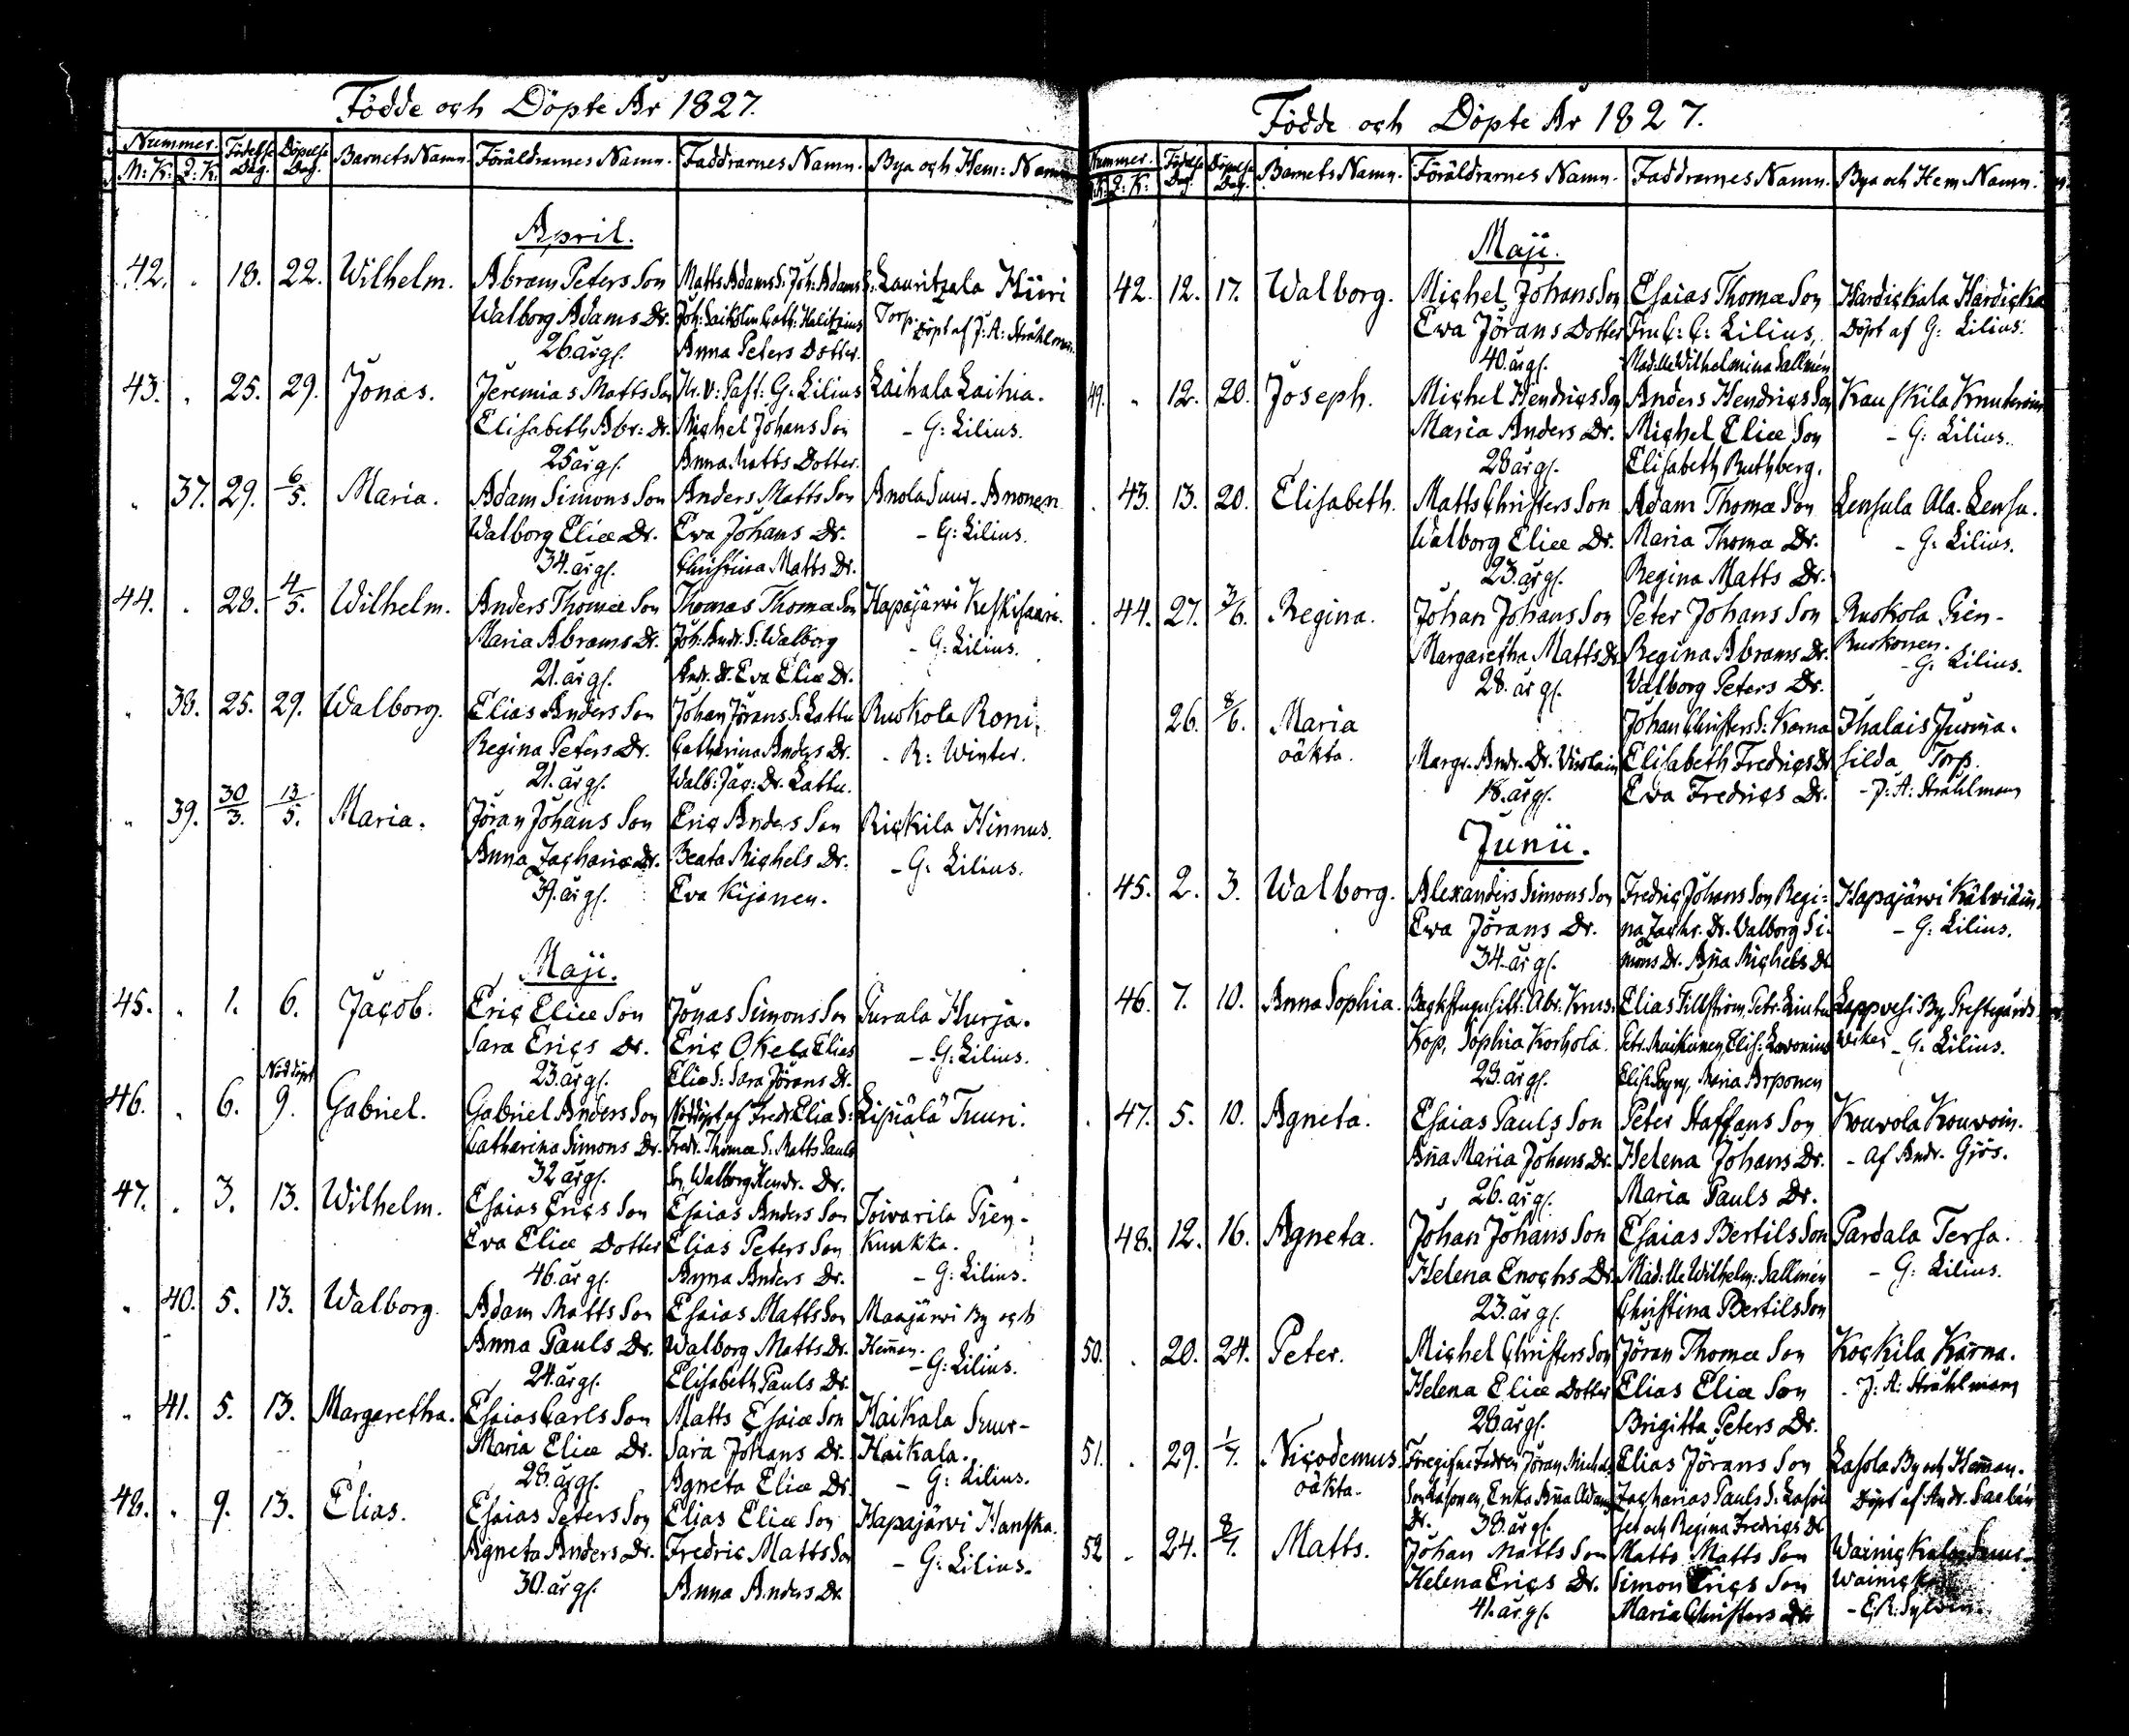 Födde och Döpte År 1827.
Nummer. Födelse Dag. Döpelse Dag. Barnets Namn. Föräldrarnes Namn. Faddrarnes Namn. Bya och Hem: Namn
M: K: Q: K.
April.
42. 18. 22. Wilhelm. Abram Peters Son Matts Adams S: Joh: Adams S: Lauritzala Hiiri
Walborg Adams Dr. Torp.
26. år gl. Anna Peters Dotter. Döpt af J: A: Stråhlman
43. 25. 29. Jonas. Jeremias Matts Son Hr. V: Past: G: Lilius Laihala Laihia.
Elisabeth Abr: Dr. Michel Johans Son - G: Lilius.
25 år gl. Anna Matts Dotter.
37. 29. 6/5. Maria. Adam Simons Son Anders Matts Son Anola Suur-Anonen
Walborg Eliæ Dr. Eva Johans Dr. - G: Lilius.
34. år gl. Christina Matts Dr.
44. 28. 4/5. Wilhelm. Anders Thomæ Son Thomas Thomæ Son Hapajärvi Keskisaari.
Maria Abrams Dr. Joh: Andr. S: Walborg - G: Lilius.
21. år gl. Andr. Dr. Eva Eliæ Dr.
38. 25. 29. Walborg. Elias Anders Son Johan Jörans S: Lattu Ruokola Roni.
Regina Peters Dr. Catharina Anders Dr. - R: Winter.
21. år gl. Walb: Jac: Dr. Lattu.
39. 30/3. 13/5. Maria. Jöran Johans Son Eric Anders Son Rickila Hinnus.
Anna Zachariæ Dr. Beata Michels Dr. - G: Lilius.
39. år gl. Eva Kijanen.
Maji.
45. 1. 6. Jacob. Eric Eliæ Son Jonas Simons Son Purala Hurja.
Sara Erics Dr. Eric Okela Elias - G: Lilius.
23. år gl. Eliæ S: Sara Jörans Dr.
Nöddöpt
46. 6. 9. Gabriel. Gabriel Anders Son Nöddöpt af Fredr. Eliæ S: Lipiälä Tuuri.
Catharina Simons Dr. Fredr. Thomæ S: Matts Pauls
32 år gl. Son, Walborg Hendr. Dr.
47. 3. 13. Wilhelm. Esaias Erics Son Esaias Anders Son Toivarila Pien-
Eva Eliæ Dotter Elias Peters Son Kuukka.
46. år gl. Anna Anders Dr. - G: Lilius.
40. 5. 13. Walborg. Adam Matts Son Esaias Matts Son Maajärvi By och
Anna Pauls Dr. Walborg Matts Dr. Heman.
24. år gl. Elisabeth Pauls Dr. - G: Lilius.
41. 5. 13. Margaretha. Esaias Carls Son Matts Esaiæ Son Haikala Suur-
Maria Eliæ Dr. Sara Johans Dr. Haikala.
28. år gl. Agneta Eliæ Dr. - G: Lilius.
48. 9. 13. Elias. Esaias Peters Son Elias Eliæ Son Hapajärvi Hanska.
Agneta Anders Dr. Fredric Matts Son - G: Lilius.
30. år gl. Anna Anders Dr.
Födde och Döpte År 1827.
Nummer. Födelse Dag. Döpelse Dag. Barnets Namn. Föräldrarnes Namn. Faddrarnes Namn. Bya och Hem Namn.
Q: K:
Maji.
42. 12. 17. Walborg. Michel Johans Son Esaias Thomæ Son Hardickala Hardicka
Eva Jörans Dotter Fru C: C: Lilius, Döpt af G: Lilius.
40. år gl. Mad:lle Wilhelmina Sallmén
49. 12. 20. Joseph. Michel Hendrics Son Anders Hendrics Son Kauskila
Maria Anders Dr. Michel Eliæ Son - G: Lilius.
28 år gl. Elisabeth Ruthberg.
43. 13. 20. Elisabeth. Matts Christers Son Adam Thomæ Son Lensula Ala-Lensu.
Walborg Eliæ Dr. Maria Thomæ Dr. - G: Lilius.
23. år gl. Regina Matts Dr.
44. 27. 3/6. Regina. Johan Johans Son Peter Johans Son Ruokola Pien-
Margaretha Matts Dr. Regina Abrams Dr. Ruokonen.
28. år gl. Walborg Peters Dr. - G: Lilius.
26. 8/6. Maria Johan Christers S: Karna Ihalais Juvina.
oäkta. Margr. Andr. Dr. Virolain Elisabeth Fredrics Dr silda Torp.
18. år gl. Eva Fredrics Dr. - J: A: Stråhlman
Junii.
45. 2. 3. Walborg. Alexanders Simons Son Fredric Johans Son Regi-
Eva Jörans Dr. na Zachr. Dr. Walborg Si- - G: Lilius.
34. år gl. mons Dr. Aña Michels Dr
46. 7. 10. Anna Sophia. Elias Fillström, Petr. Lintu Lappvesi By Prestgårds
Kop, Sophia Korhola. - G: Lilius.
23. år gl. Maria Arponen
47. 5. 10. Agneta. Esaias Pauls Son Peter Staffans Son Kouvola Kouvoin.
Aña Maria Johans Dr. Helena Johans Dr. - af Andr. Gjös.
26. år gl. Maria Pauls Dr.
48. 12. 16. Agneta. Johan Johans Son Esaias Bertils Son Pardala Tersa.
Helena Enochs Dr. Mad:lle Wilhelm: Sallmén - G: Lilius.
23. år gl. Christina Bertils Son
50. 20. 24. Peter. Michel Christers Son Jöran Thomæ Son Kockila Kärna.
Helena Eliæ Dotter Elias Eliæ Son - J: A: Stråhlman
28. år gl. Brigitta Peters Dr.
51. 29. 1/7. Nicodemus Föregifne Fadren Jöran Michels Elias Jörans Son Lasola By och Heman.
oäkta. Son Lasonen, Erika Aña Adams Zacharias Pauls S: Döpt af Andr.
Dr. 38. år gl. och Regina Fredrics Dr
52. 24. 8/7. Matts. Johan Matts Son Matts Matts Son Wainickala Suur-
Helena Erics Dr. Simon Erics Son
41. år gl. Maria Christers Dr